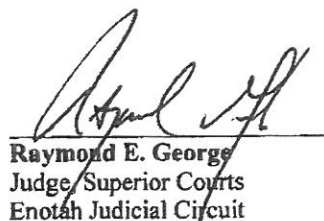 Raymond E. George
Judge, Superior Courts
Enotah Judicial Circuit